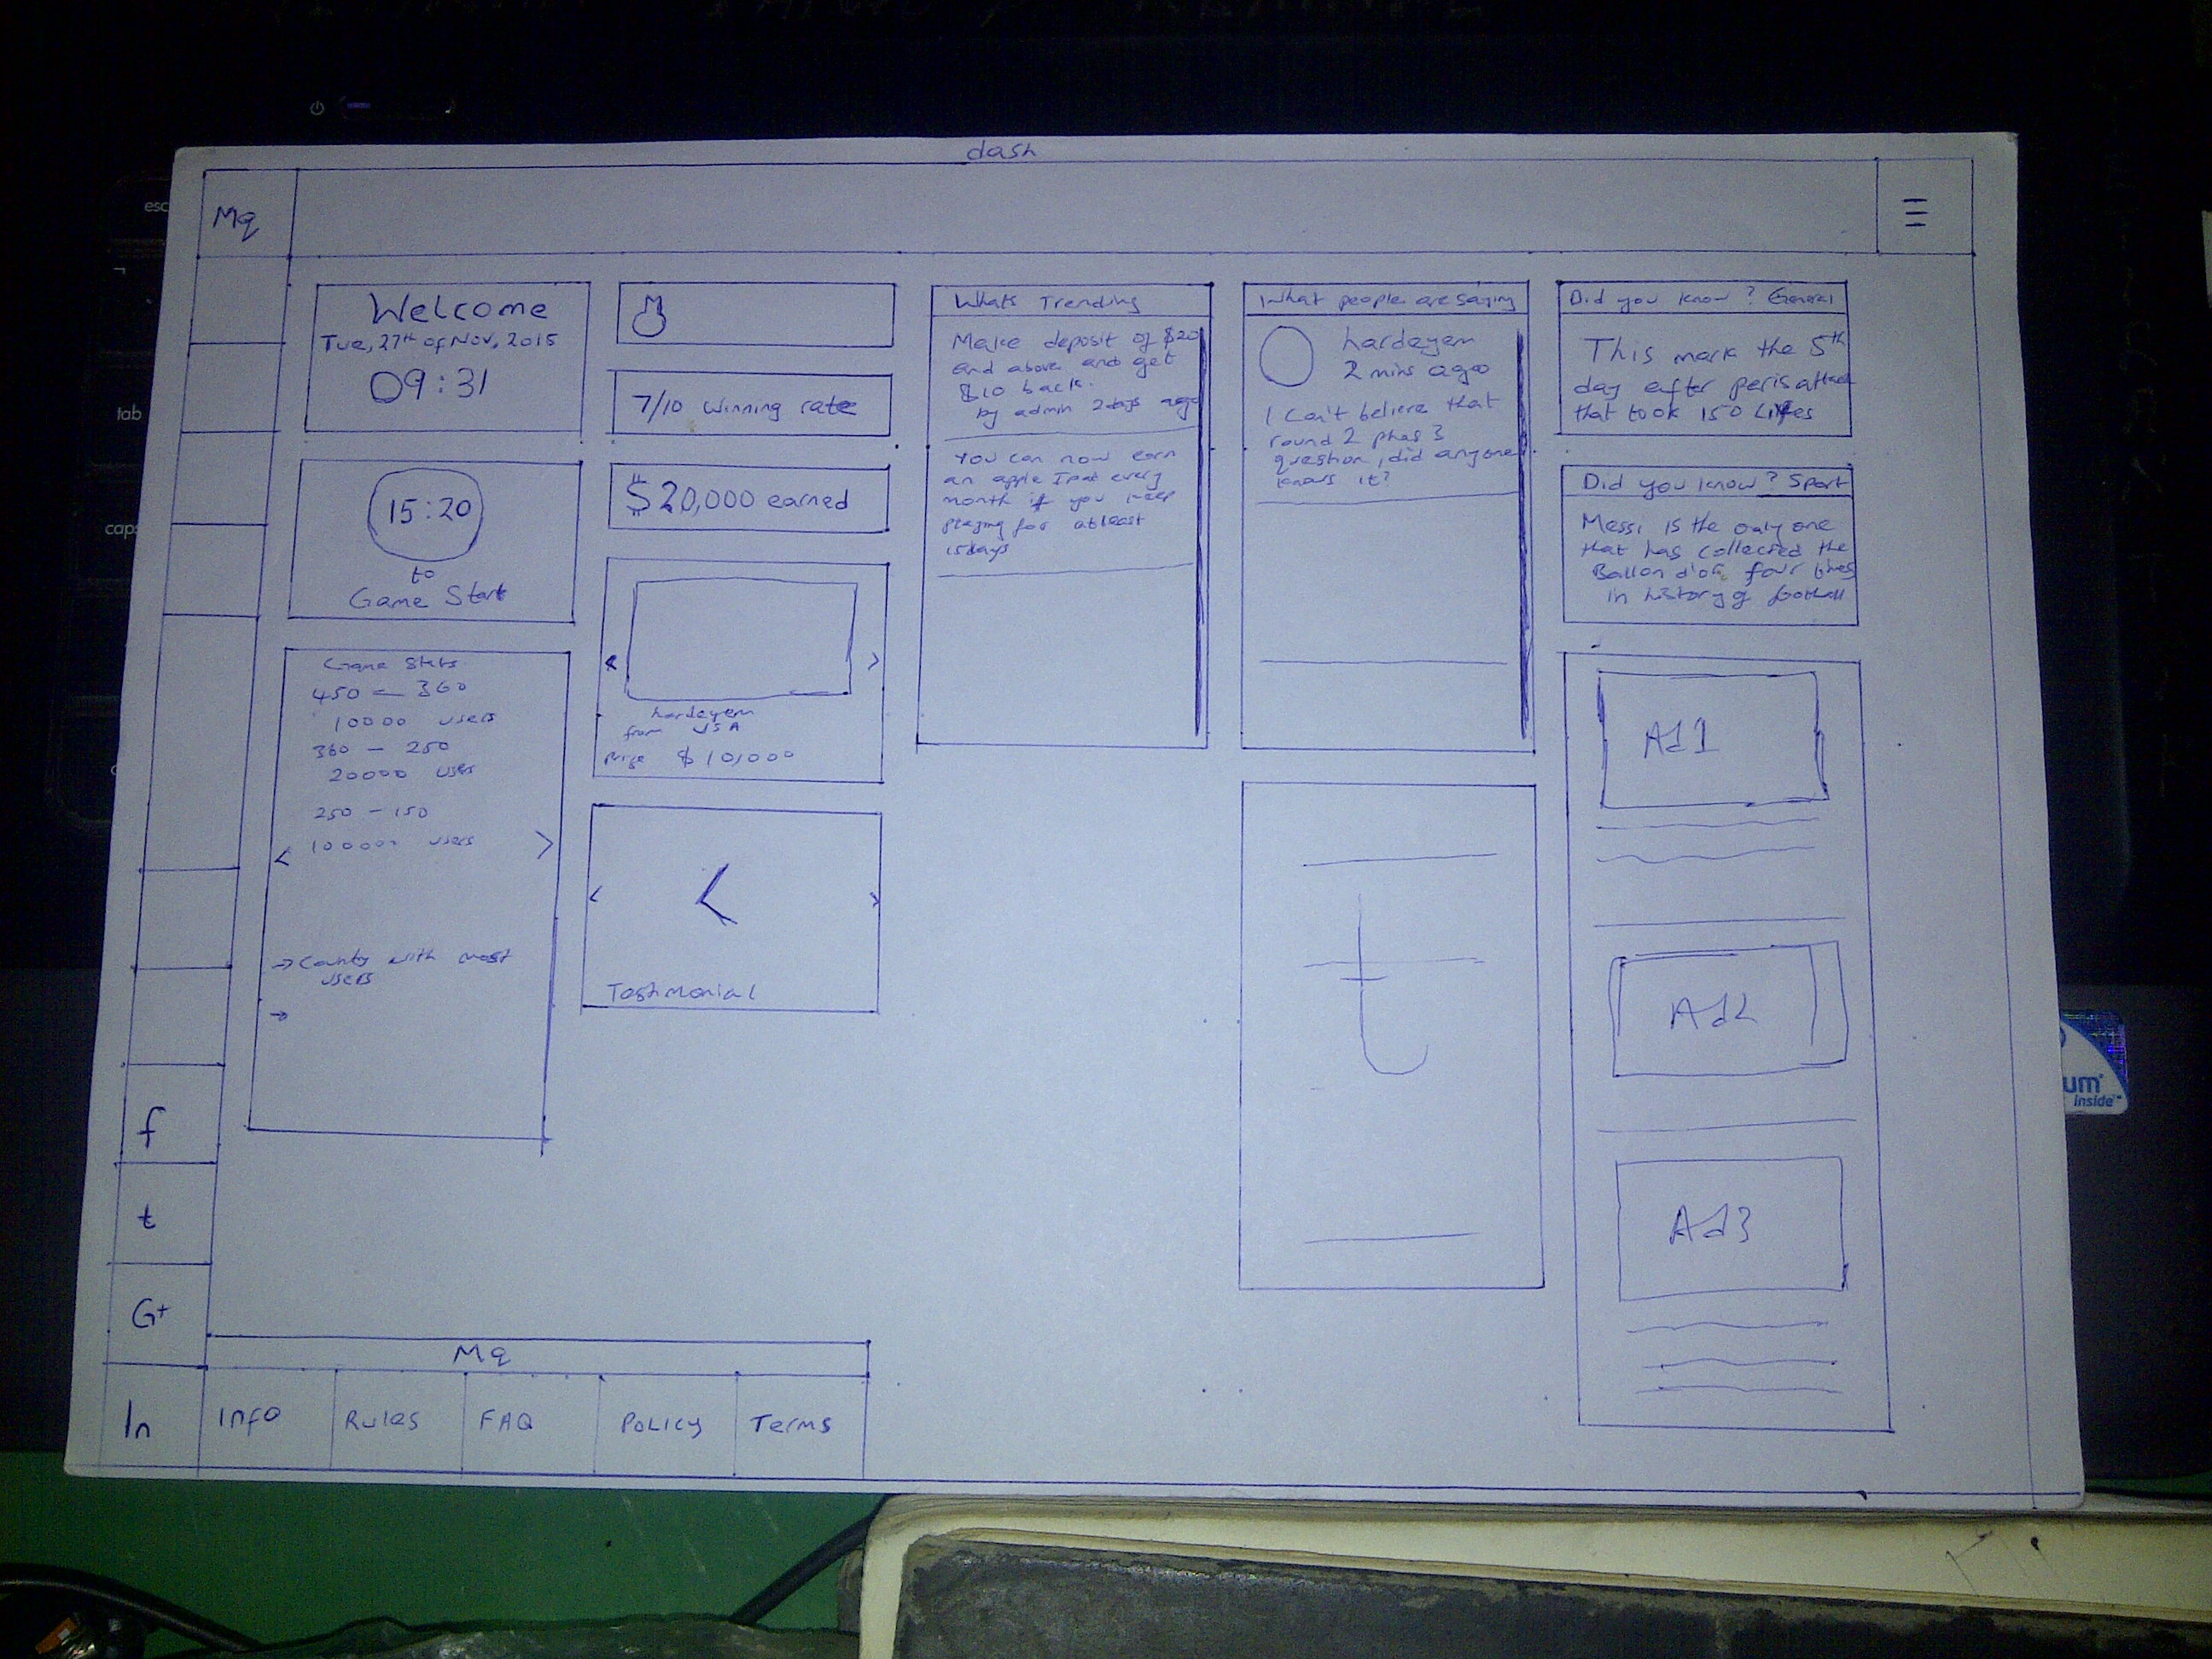 dash
Mq
Welcome
Tue, 27th of Nov, 2015
09:31
15:20
to
Game Start
Game Stats
450 - 360
10000 users
360 - 250
20000 users
250 - 150
users
→ County with most
users
→
7/10 winning rate
$20,000 earned
hardeyem
from USA
Prize $10,000
Testimonial
Whats Trending
Make deposit of $20
and above and get
$10 back.
by admin 2days ago
You can now earn
an apple every
month if you keep
playing for atleast
15days
What people are saying
hardeyem
2 mins ago
I Can't believe that
round 2 phas 3
question, did anyone
knows it?
t
Did you know? General
This mark the 5th
day after peris attack
that took 150 Lifes
Did you know? Sport
Messi is the only one
that has collected the
Ballon d'or four times
in history of football
Ad1
Ad2
Ad3
f
t
G+
In
Mq
Info
Rules
FAQ
Policy
Terms
esc
tab
caps
um
inside™